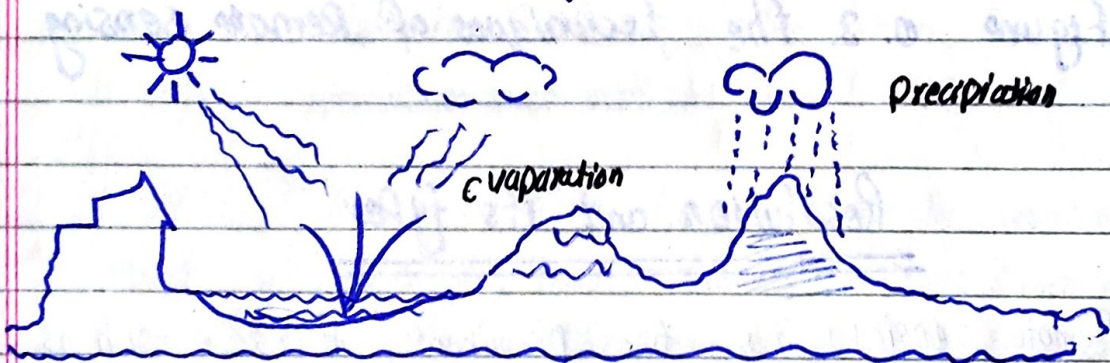 precipication
Evaparation